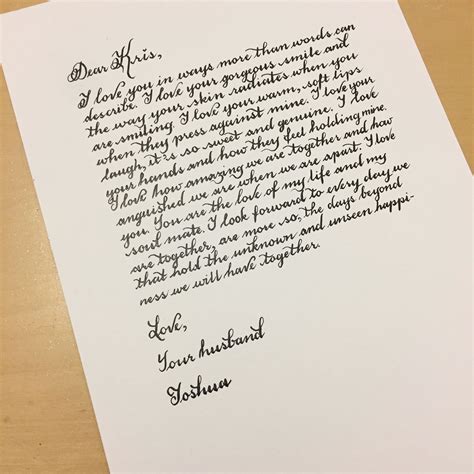 Dear Kris,
I love you in ways more than words can
describe. I love your gorgeous smile and
the way your skin radiates when you
are smiling. I love your warm, soft lips
when they press against mine. I love your
laugh, it's so sweet and genuine. I love
your hands and how they feel holding mine.
I love how amazing we are together and how
anguished we are when we are apart. I love
you. You are the love of my life and my
soul mate. I look forward to every day we
are together, are more so, the days beyond
that hold the unknown and unseen happi-
ness we will have together.
Love,
Your husband
Joshua